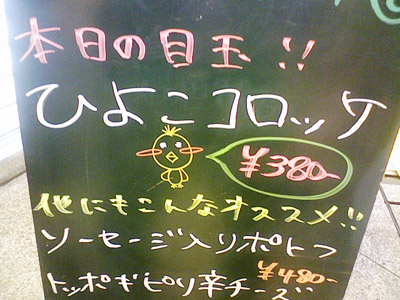 本日の目玉!!
ひよこコロッケ
¥380-
他にもこんなオススメ!!
ソーセージ入りポトフ
¥480-
トッポギピリ辛チーズ